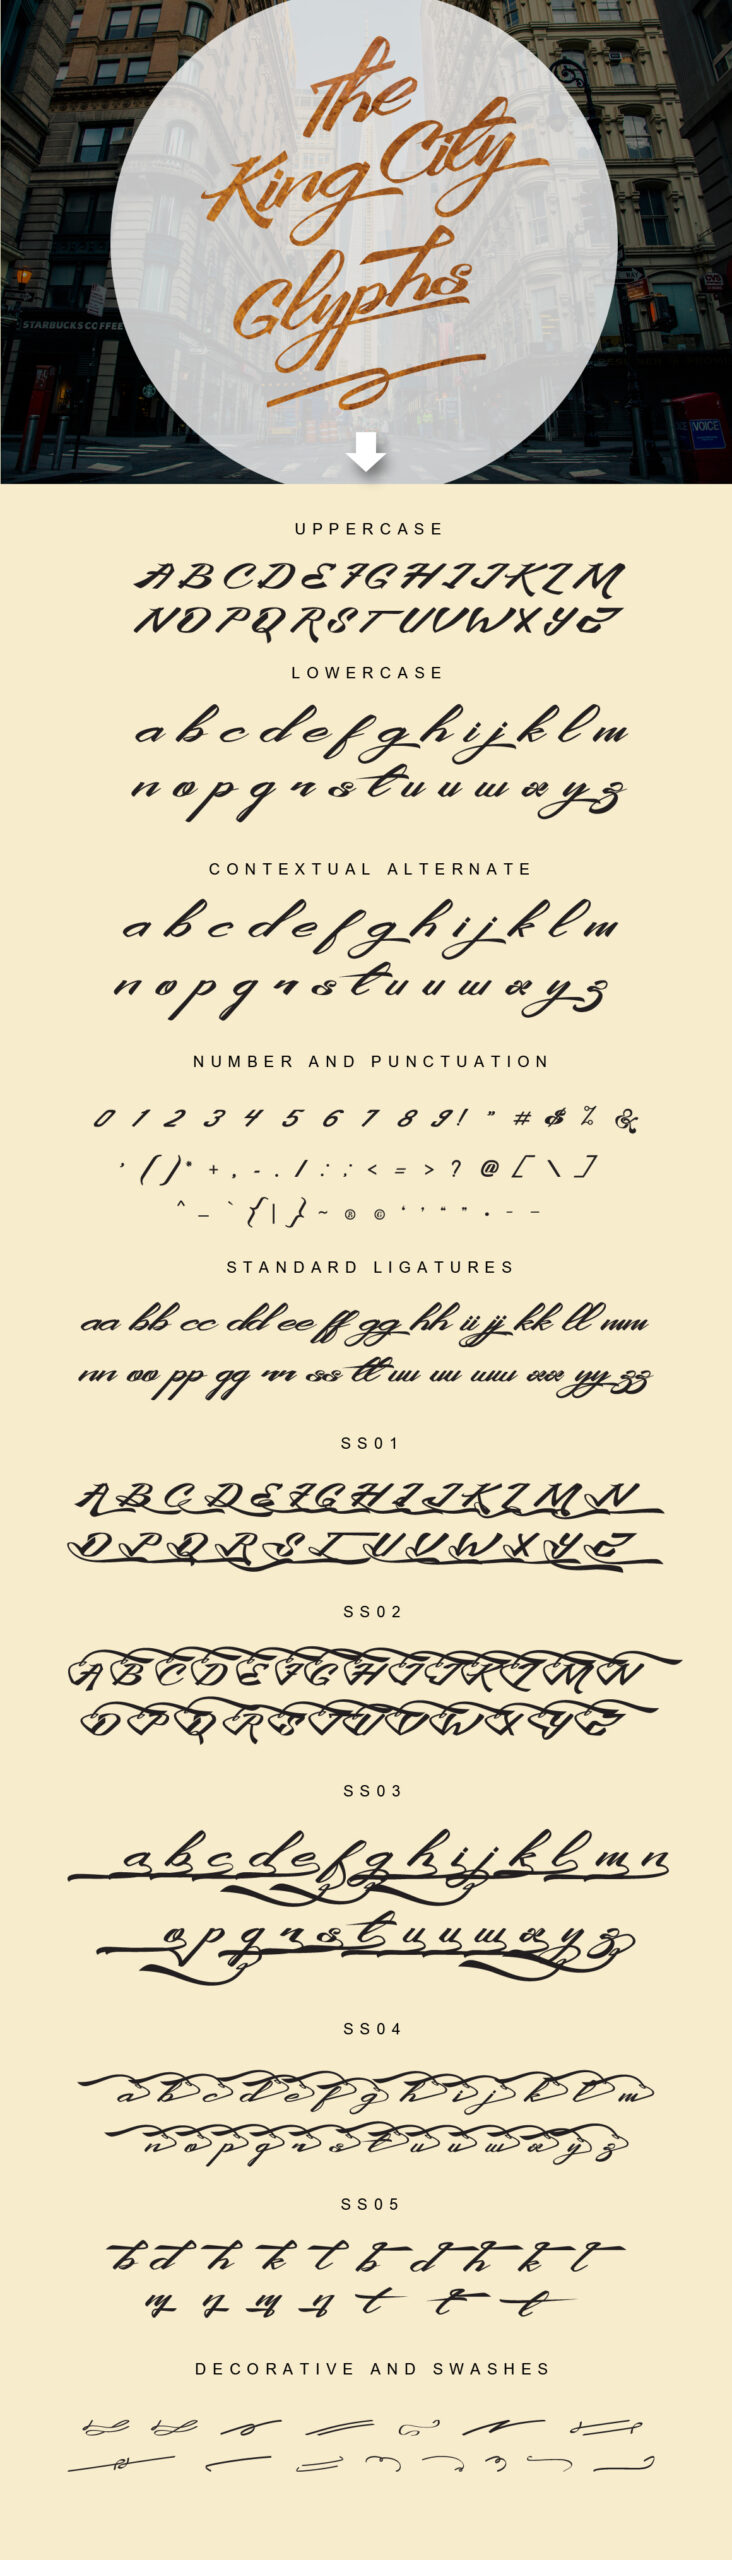 The
King City
Glyphs
STARBUCKS COFFEE
WAY
VOICE
UPPERCASE
A B C D E F G H I J K L M
N O P Q R S T U V W X Y Z
LOWERCASE
a b c d e f g h i j k l m
n o p q r s t u v w x y z
CONTEXTUAL ALTERNATE
a b c d e f g h i j k l m
n o p q r s t u v w x y z
NUMBER AND PUNCTUATION
0 1 2 3 4 5 6 7 8 9 ! " # $ % &
' ( ) * + , - . / : ; < = > ? @ [ \ ]
^ _ ` { | } ~ ® © ‘ ’ “ ” • – —
STANDARD LIGATURES
aa bb cc dd ee ff gg hh ii jj kk ll mm
nn oo pp qq rr ss tt uu vv ww xx yy zz
SS01
A B C D E F G H I J K L M N
O P Q R S T U V W X Y Z
SS02
A B C D E F G H I J K L M N
O P Q R S T U V W X Y Z
SS03
a b c d e f g h i j k l m n
o p q r s t u v w x y z
SS04
a b c d e f g h i j k l m
n o p q r s t u v w x y z
SS05
b d h k l b d h k l
m n m n t t t
DECORATIVE AND SWASHES